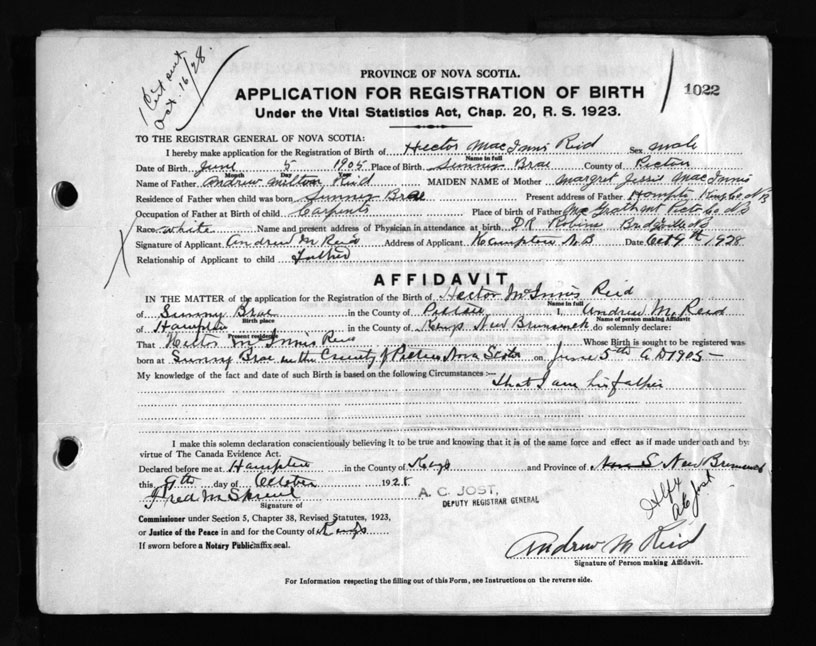 1 Cert out
Oct. 16/28.
PROVINCE OF NOVA SCOTIA.
APPLICATION FOR REGISTRATION OF BIRTH
1022
Under the Vital Statistics Act, Chap. 20, R. S. 1923.
TO THE REGISTRAR GENERAL OF NOVA SCOTIA:
I hereby make application for the Registration of Birth of Hector MacInnis Reid Sex male
Name in full
Date of Birth June 5 1905 Place of Birth Sunny Brae County of Pictou
Month Day Year
Name of Father Andrew Milton Reid MAIDEN NAME of Mother Margret Jessie MacInnis
Residence of Father when child was born Sunney Brae Present address of Father Hampton Kings Co NB
Occupation of Father at Birth of child Carpenter Place of birth of Father
Race white Name and present address of Physician in attendance at birth DR
Signature of Applicant Andrew M Reid Address of Applicant Hampton N.B Date Oct 9th 1928
Relationship of Applicant to child Father
AFFIDAVIT
IN THE MATTER of the application for the Registration of the Birth of Hector McInnis Reid
Name in full
of Sunny Brae in the County of Pictou I, Andrew M. Reid
Birth place Name of person making Affidavit
of Hampton in the County of Kings New Brunswick do solemnly declare:
Present residence
That Hector McInnis Reid Whose Birth is sought to be registered was
born at Sunny Brae in the County of Pictou Nova Scotia on June 5th A D 1905 —
My knowledge of the fact and date of such Birth is based on the following Circumstances :—
that I am his father
I make this solemn declaration conscientiously believing it to be true and knowing that it is of the same force and effect as if made under oath and by
virtue of The Canada Evidence Act.
Declared before me at Hampton in the County of Kings and Province of Nova S New Brunswick
this 9th day of October 1928
Fred M Sproul
A. C. JOST,
DEPUTY REGISTRAR GENERAL
Signature of
Commissioner under Section 5, Chapter 38, Revised Statutes, 1923,
or Justice of the Peace in and for the County of Kings
If sworn before a Notary Public affix seal.
Andrew M Reid
Signature of Person making Affidavit.
For Information respecting the filling out of this Form, see Instructions on the reverse side.